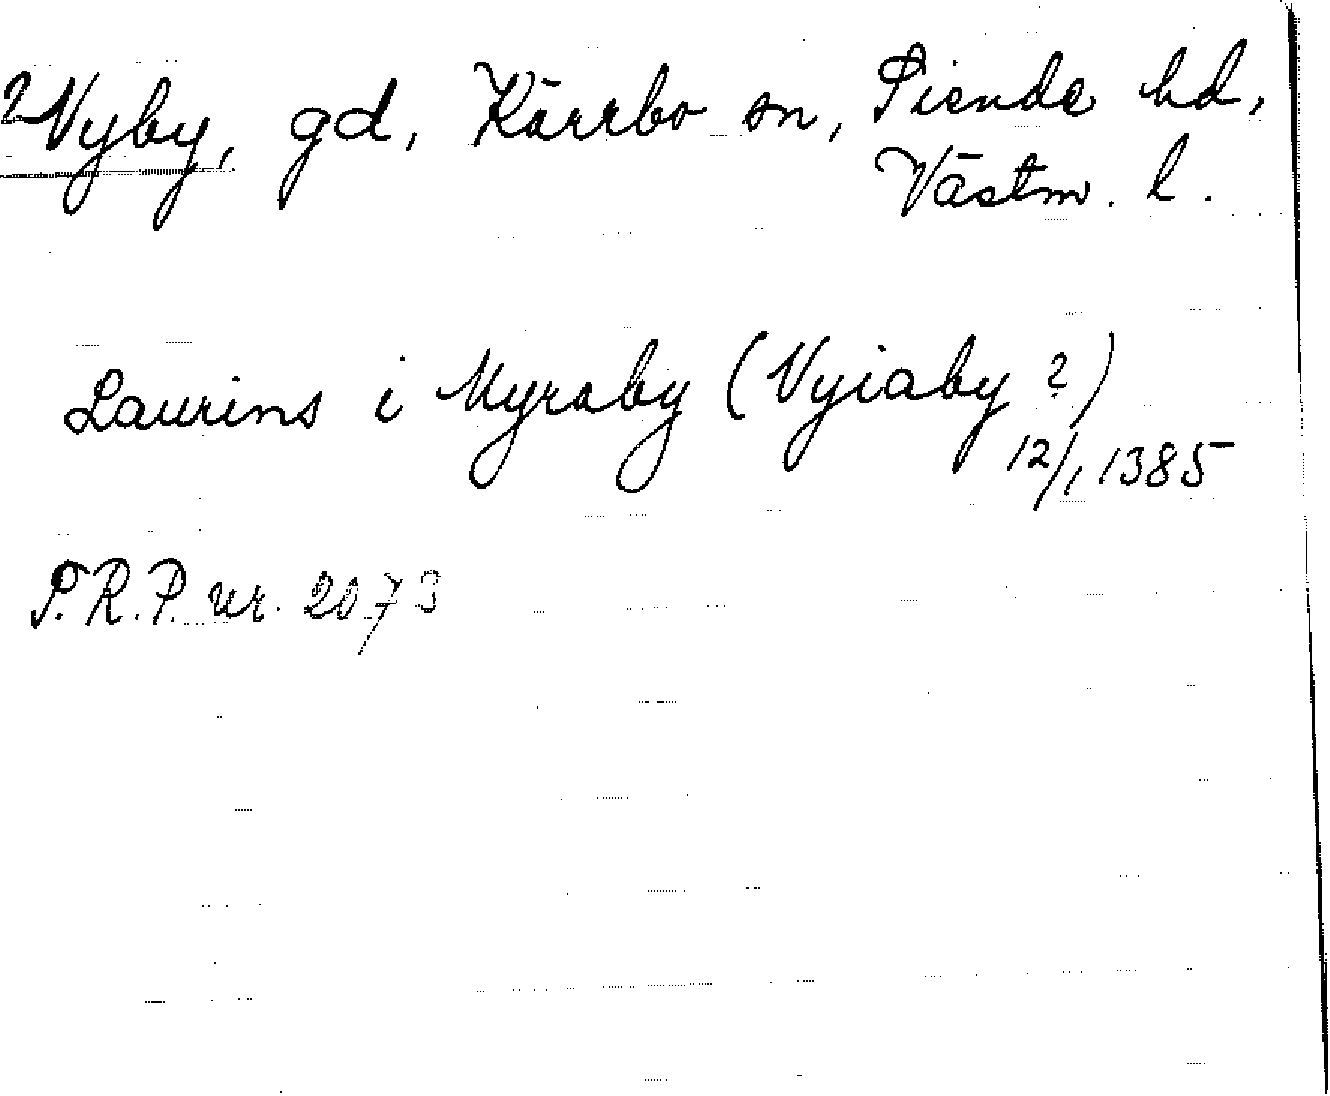 ?Vyby, gd, Kärrbo sn, Siende hd,
Västm. l.
Laurins i Myraby (Vyiaby?)
12/1 1385
P.R.P. nr. 2073